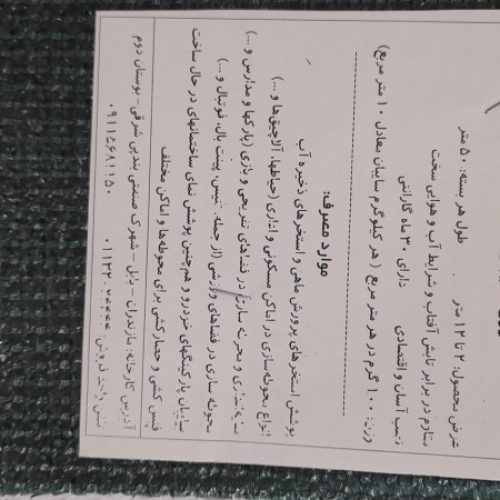 عرض محصول: ۲ تا ۱۲ متر طول هر بسته: ۵۰ متر
مقاوم در برابر تابش آفتاب و شرایط آب و هوایی سخت
نصب آسان و اقتصادی دارای ۳۰ ماه گارانتی
وزن: ۱۰۰ گرم در هر متر مربع ( هر کیلوگرم سایبان معادل ۱۰ متر مربع)
موارد مصرف:
پوشش استخرهای پرورش ماهی و استخرهای ذخیره آب
انواع محوطه سازی در اماکن مسکونی و اداری (حیاطها، آلاچیق‌ها و ...)
سایه اندازی و محوطه سازی در فضاهای تفریحی و بازی (پارکها و مدارس و ...)
محوطه سازی در فضاهای ورزشی (از جمله، تنیس، پینت بال، فوتبال و ...)
سایبان پارکینگهای خودرو و هم‌چنین پوشش نمای ساختمانهای در حال ساخت
فنس کشی و حصارکشی برای محوطه ها و اماکن مختلف
آدرس کارخانه: مازندران - بابل - شهرک صنعتی بندپی شرقی - بوستان دوم
تلفن واحد فروش: